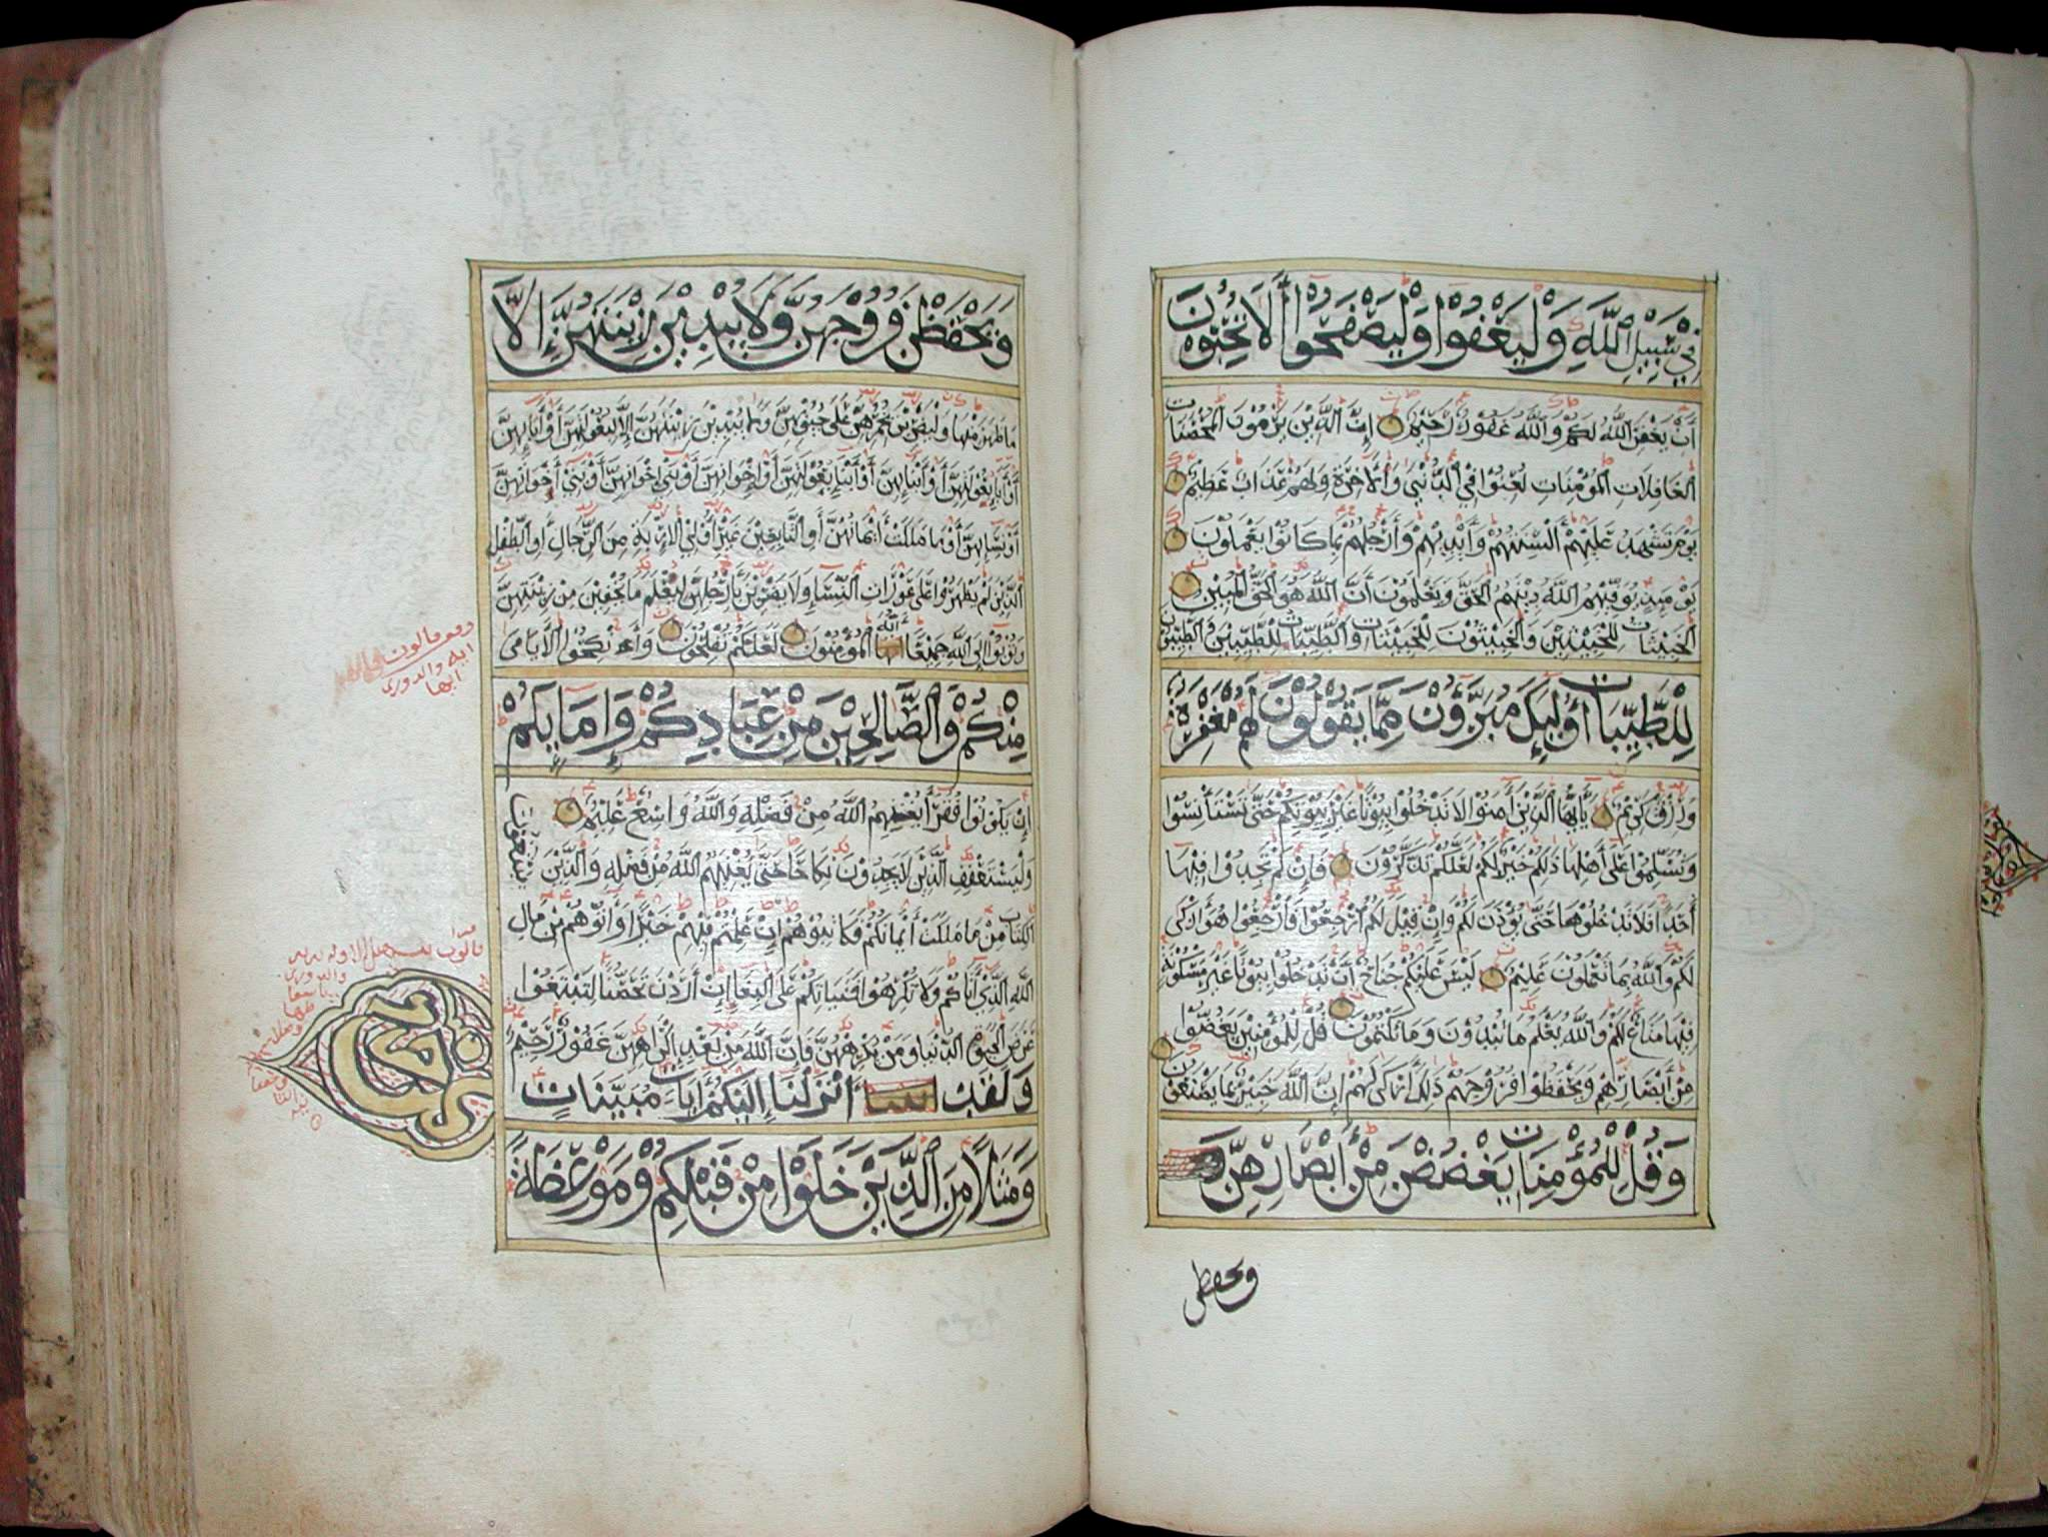 فِي سَبِيلِ ٱللَّهِ وَلْيَعْفُوا وَلْيَصْفَحُوا أَلَا تُحِبُّونَ
أَنْ يَغْفِرَ اللَّهُ لَكُمْ وَاللَّهُ غَفُورٌ رَحِيمٌ إِنَّ الَّذِينَ يَرْمُونَ الْمُحْصَنَاتِ
الْغَافِلَاتِ الْمُؤْمِنَاتِ لُعِنُوا فِي الدُّنْيَا وَالْآخِرَةِ وَلَهُمْ عَذَابٌ عَظِيمٌ
يَوْمَ تَشْهَدُ عَلَيْهِمْ أَلْسِنَتُهُمْ وَأَيْدِيهِمْ وَأَرْجُلُهُمْ بِمَا كَانُوا يَعْمَلُونَ
يَوْمَئِذٍ يُوَفِّيهِمُ اللَّهُ دِينَهُمُ الْحَقَّ وَيَعْلَمُونَ أَنَّ اللَّهَ هُوَ الْحَقُّ الْمُبِينُ
الْخَبِيثَاتُ لِلْخَبِيثِينَ وَالْخَبِيثُونَ لِلْخَبِيثَاتِ وَالطَّيِّبَاتُ لِلطَّيِّبِينَ وَالطَّيِّبُونَ
لِلطَّيِّبَاتِ أُولَئِكَ مُبَرَّؤُونَ مِمَّا يَقُولُونَ لَهُمْ مَغْفِرَةٌ
وَرِزْقٌ كَرِيمٌ يَاأَيُّهَا الَّذِينَ آمَنُوا لَا تَدْخُلُوا بُيُوتًا غَيْرَ بُيُوتِكُمْ حَتَّى تَسْتَأْنِسُوا
وَتُسَلِّمُوا عَلَى أَهْلِهَا ذَلِكُمْ خَيْرٌ لَكُمْ لَعَلَّكُمْ تَذَّكَّرُونَ فَإِنْ لَمْ تَجِدُوا فِيهَا
أَحَدًا فَلَا تَدْخُلُوهَا حَتَّى يُؤْذَنَ لَكُمْ وَإِنْ قِيلَ لَكُمُ ارْجِعُوا فَارْجِعُوا هُوَ أَزْكَى
لَكُمْ وَاللَّهُ بِمَا تَعْمَلُونَ عَلِيمٌ لَيْسَ عَلَيْكُمْ جُنَاحٌ أَنْ تَدْخُلُوا بُيُوتًا غَيْرَ مَسْكُونَةٍ
فِيهَا مَتَاعٌ لَكُمْ وَاللَّهُ يَعْلَمُ مَا تُبْدُونَ وَمَا تَكْتُمُونَ قُلْ لِلْمُؤْمِنِينَ يَغُضُّوا
مِنْ أَبْصَارِهِمْ وَيَحْفَظُوا فُرُوجَهُمْ ذَلِكَ أَزْكَى لَهُمْ إِنَّ اللَّهَ خَبِيرٌ بِمَا يَصْنَعُونَ
وَقُلْ لِلْمُؤْمِنَاتِ يَغْضُضْنَ مِنْ أَبْصَارِهِنَّ
ويحفظن
وَيَحْفَظْنَ فُرُوجَهُنَّ وَلَا يُبْدِينَ زِينَتَهُنَّ إِلَّا
مَا ظَهَرَ مِنْهَا وَلْيَضْرِبْنَ بِخُمُرِهِنَّ عَلَى جُيُوبِهِنَّ وَلَا يُبْدِينَ زِينَتَهُنَّ إِلَّا لِبُعُولَتِهِنَّ أَوْ آبَائِهِنَّ
أَوْ آبَاءِ بُعُولَتِهِنَّ أَوْ أَبْنَائِهِنَّ أَوْ أَبْنَاءِ بُعُولَتِهِنَّ أَوْ إِخْوَانِهِنَّ أَوْ بَنِي إِخْوَانِهِنَّ أَوْ بَنِي أَخَوَاتِهِنَّ
أَوْ نِسَائِهِنَّ أَوْ مَا مَلَكَتْ أَيْمَانُهُنَّ أَوِ التَّابِعِينَ غَيْرِ أُولِي الْإِرْبَةِ مِنَ الرِّجَالِ أَوِ الطِّفْلِ
الَّذِينَ لَمْ يَظْهَرُوا عَلَى عَوْرَاتِ النِّسَاءِ وَلَا يَضْرِبْنَ بِأَرْجُلِهِنَّ لِيُعْلَمَ مَا يُخْفِينَ مِنْ زِينَتِهِنَّ
وَتُوبُوا إِلَى اللَّهِ جَمِيعًا أَيُّهَ الْمُؤْمِنُونَ لَعَلَّكُمْ تُفْلِحُونَ وَأَنْكِحُوا الْأَيَامَى
مِنْكُمْ وَالصَّالِحِينَ مِنْ عِبَادِكُمْ وَإِمَائِكُمْ
إِنْ يَكُونُوا فُقَرَاءَ يُغْنِهِمُ اللَّهُ مِنْ فَضْلِهِ وَاللَّهُ وَاسِعٌ عَلِيمٌ
وَلْيَسْتَعْفِفِ الَّذِينَ لَا يَجِدُونَ نِكَاحًا حَتَّى يُغْنِيَهُمُ اللَّهُ مِنْ فَضْلِهِ وَالَّذِينَ يَبْتَغُونَ
الْكِتَابَ مِمَّا مَلَكَتْ أَيْمَانُكُمْ فَكَاتِبُوهُمْ إِنْ عَلِمْتُمْ فِيهِمْ خَيْرًا وَآتُوهُمْ مِنْ مَالِ
اللَّهِ الَّذِي آتَاكُمْ وَلَا تُكْرِهُوا فَتَيَاتِكُمْ عَلَى الْبِغَاءِ إِنْ أَرَدْنَ تَحَصُّنًا لِتَبْتَغُوا
عَرَضَ الْحَيَوةِ الدُّنْيَا وَمَنْ يُكْرِهْهُنَّ فَإِنَّ اللَّهَ مِنْ بَعْدِ إِكْرَاهِهِنَّ غَفُورٌ رَحِيمٌ
وَلَقَدْ أَنْزَلْنَا إِلَيْكُمْ آيَاتٍ مُبَيِّنَاتٍ
وَمَثَلًا مِنَ الَّذِينَ خَلَوْا مِنْ قَبْلِكُمْ وَمَوْعِظَةً
قالون
ايه والدوري
ايها